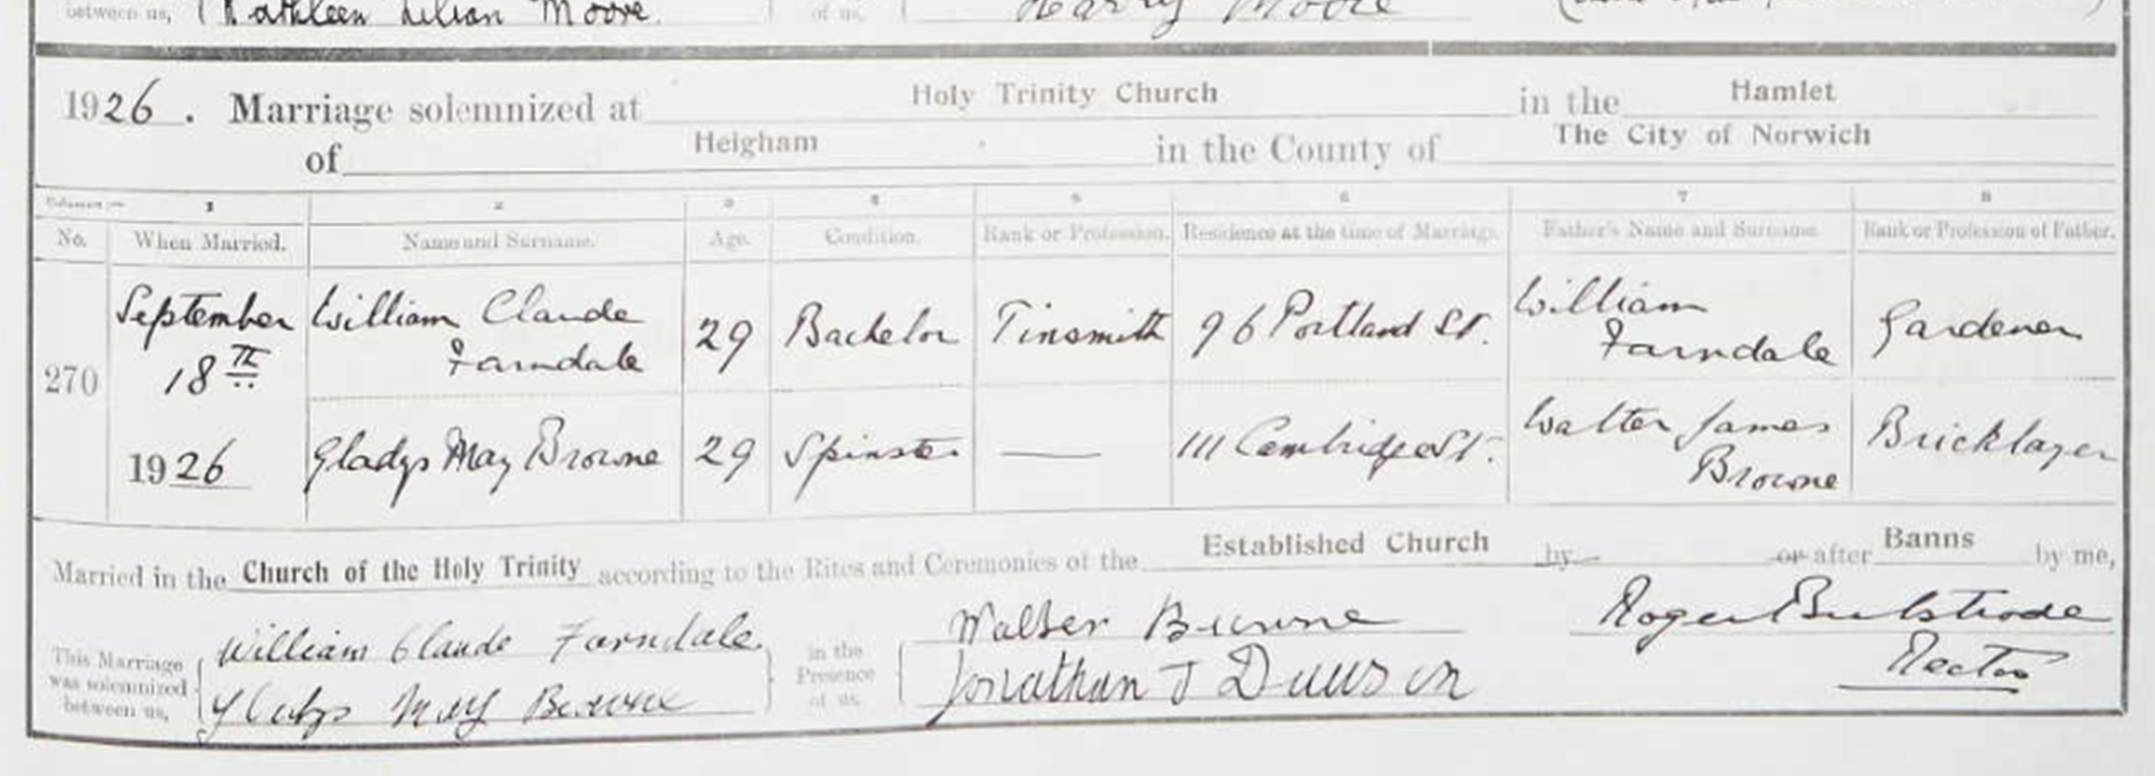 between us, Kathleen Lilian Moore of us, Harry Moore
1926. Marriage solemnized at Holy Trinity Church in the Hamlet
of Heigham in the County of The City of Norwich
Columns:— 1 2 3 4 5 6 7 8
No. When Married. Name and Surname. Age. Condition. Rank or Profession. Residence at the time of Marriage. Father's Name and Surname. Rank or Profession of Father.
September William Claude 29 Bachelor Tinsmith 96 Portland St. William Gardener
18TH Farndale Farndale
270
1926 Gladys May Browne 29 Spinster — 111 Cambridge St. Walter James Bricklayer
Browne
Married in the Church of the Holy Trinity according to the Rites and Ceremonies of the Established Church by or after Banns by me,
This Marriage was solemnized between us, William Claude Farndale in the Presence of us, Walter Browne Roger Bulstrode
Gladys May Browne Jonathan J Rector